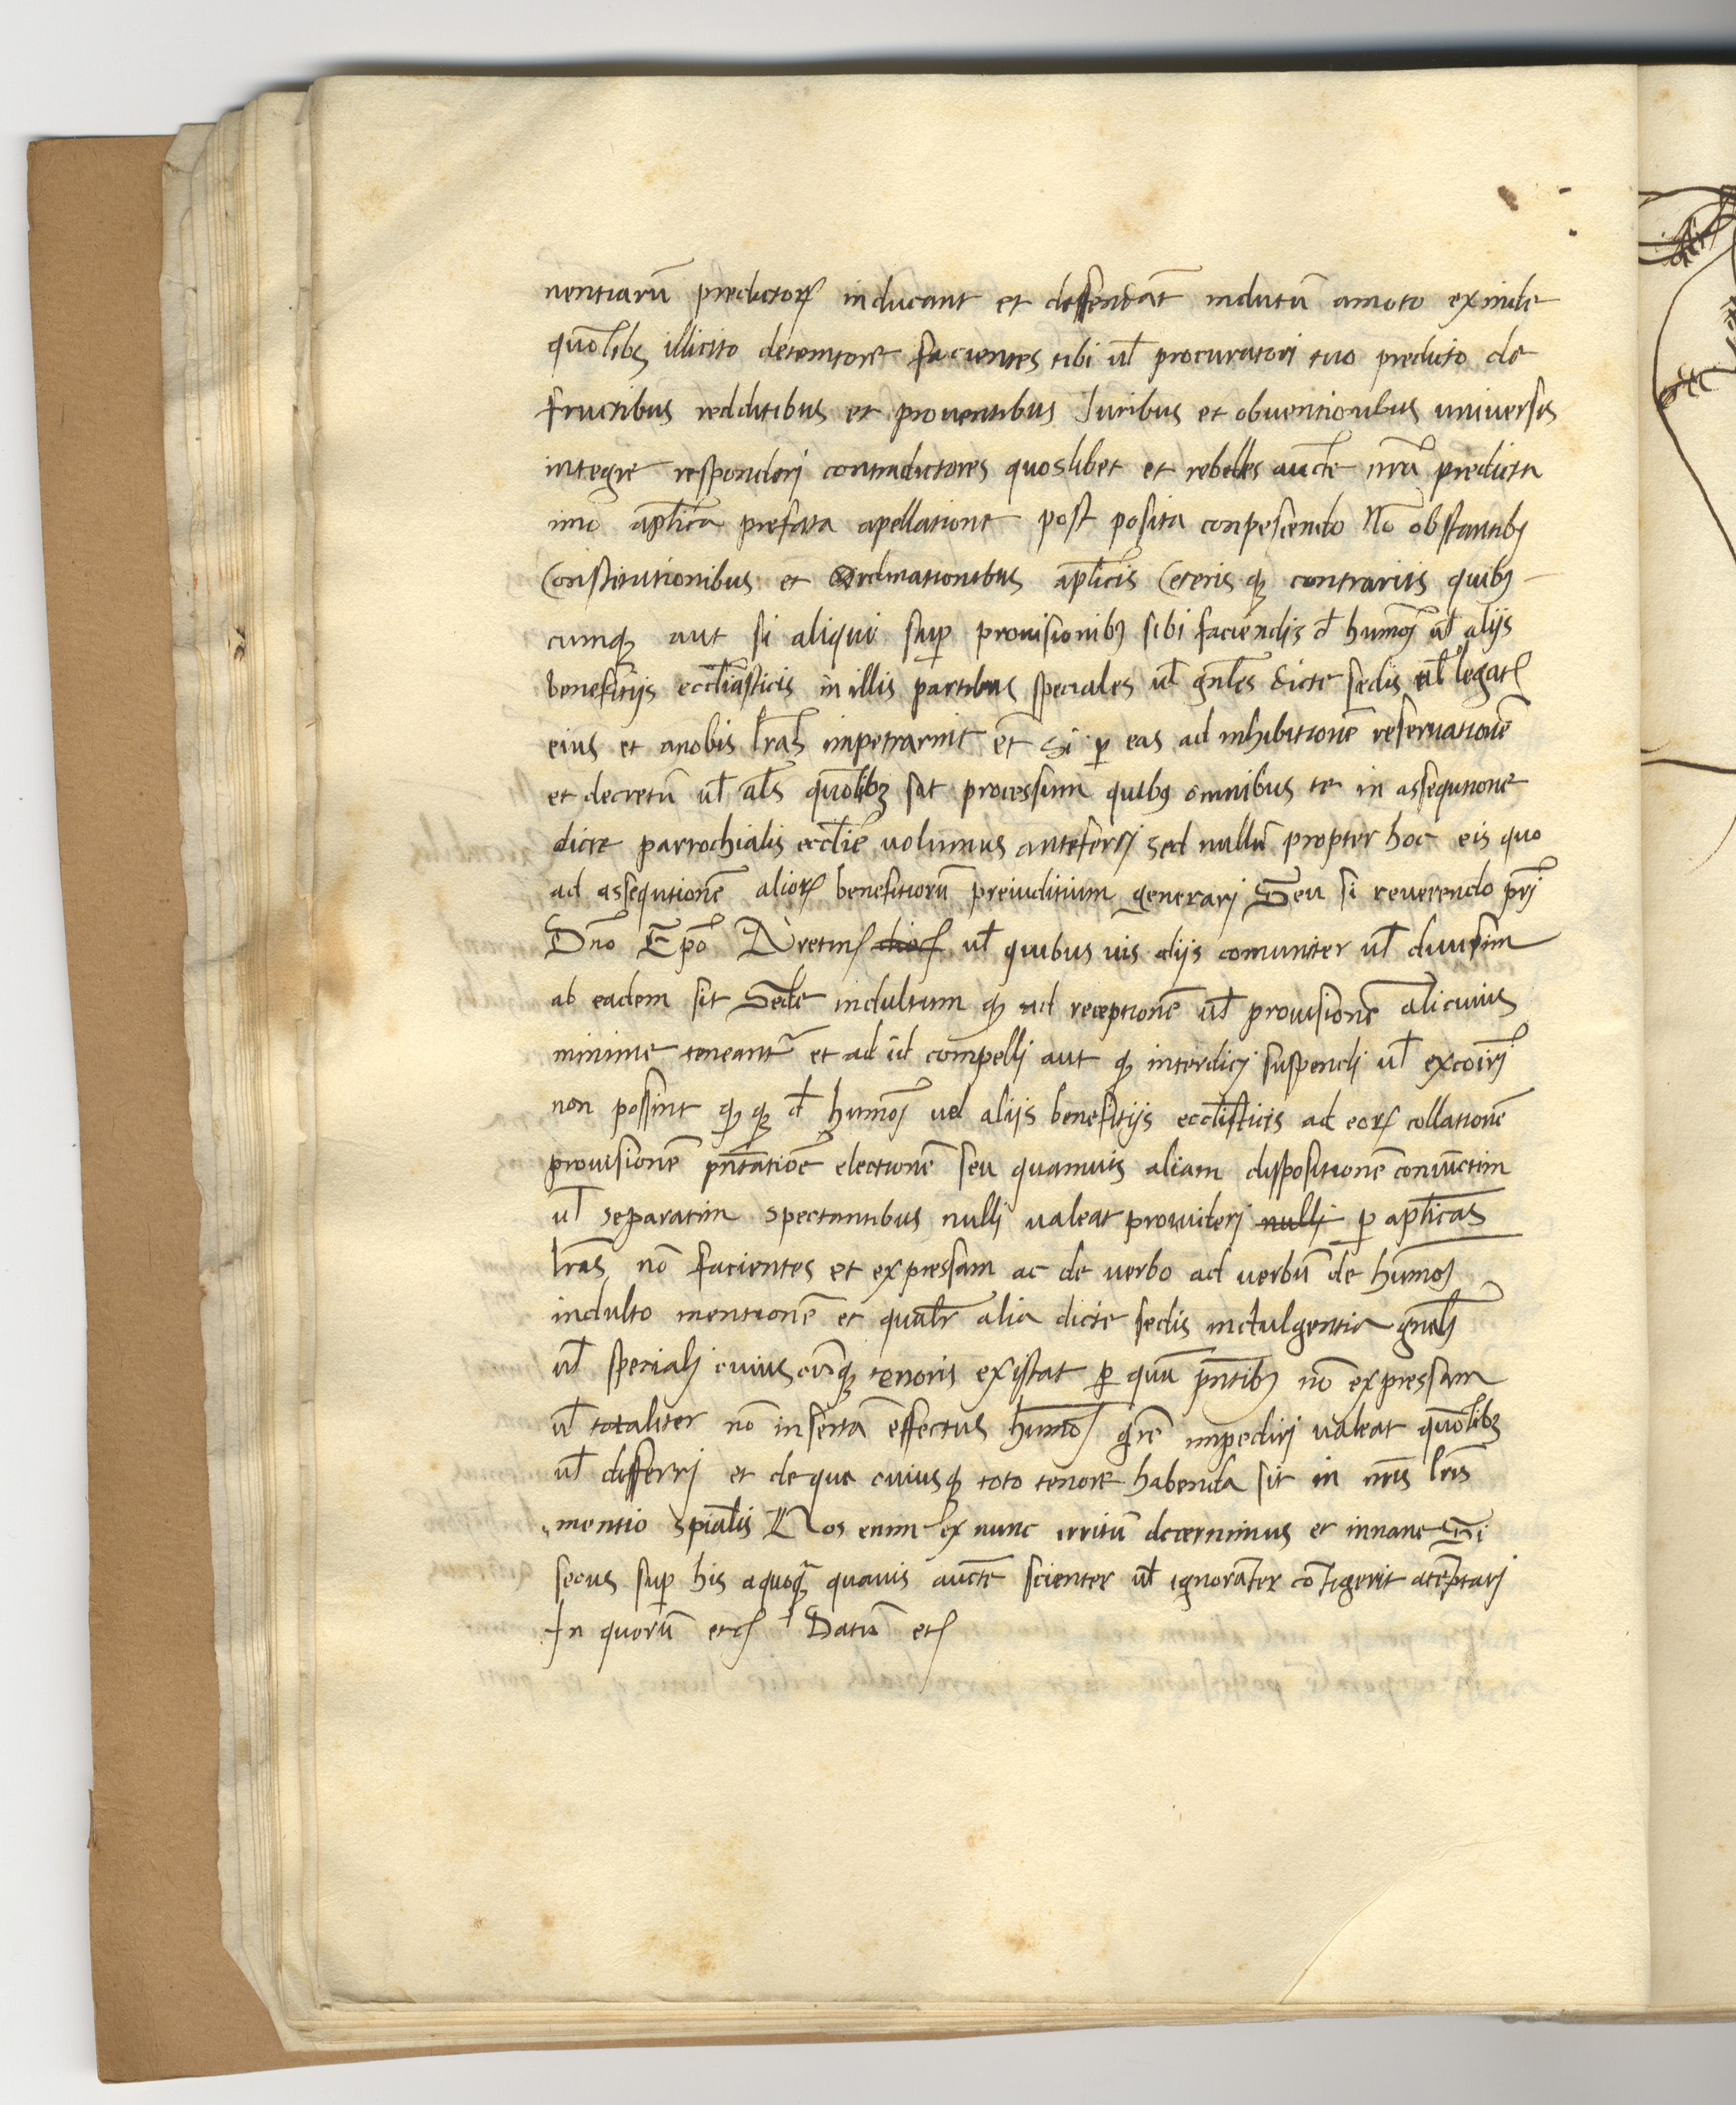 nentiarū predictoꝝ inducant et deffendāt indutū amoto exinde
quōlibꝫ illicito detentore facientes tibi ul̄ procuratori tuo predicto de
fructibus redditibus et prouentibus Juribus et obuentionibus uniuersis
integre responderi contradictores quoslibet et rebelles aucte nrā predicta
imo aplica prefata apellatione post posita conpescendo Nō obstantibꝫ
Constitutionibus et Ordinationibus aplicis Ceteris qꝫ contrariis quibꝫ
cumqꝫ aut si aliqui sup prouisionibꝫ sibi faciendis d̄ humoj ul̄ aliis
benefitijs eccliasticis in illis partibus speciales ul̄ gn̄les dicte sedis ul̄ legatꝭ
eius et anobis lrās impetrarint et Si ꝑ eas ad inhibitionē reseruationē
et decretū ul̄ als quōlibꝫ sit processum quibꝫ omnibus te in assequtione
dicte parrochialis ecclie uolumus anteferrj sed nullū propter hoc eis quo
ad assequtionē alioꝝ benefitiorū preiuditium generarj Seu si reuerendo prj
Dnō Epō Aretinꝭ ul̄ quibus uis aliis comuniter ul̄ diuisim
ab eadem sit Sede indultum qꝫ ad receptionē ul̄ prouisionē alicuius
minime teneantᷣ et ad id compelli aut qꝫ interdicj suspendi ul̄ excoīrj
non possint qꝫ qꝫ d̄ humoj uel aliis benefitijs ecclisticis ad eoꝝ collationē
prouisionē pn̄tatioē electionē seu quamuis aliam dispositionē coniūctim
ul̄ separatim spectantibus nulli ualeat prouiderj nulli ꝑ aplicas
lrās nō facientes et expressam ac de uerbo ad uerbū de humoj
indulto mentionē et qualr̄ alia dicte sedis indulgentia gn̄alj
ul̄ specialj cuiuscūqꝫ tenoris existat ꝑ quā pn̄tibꝫ nō expressam
ul̄ totaliter nō insertā effectus humoj grē impedirj ualeat quōlibꝫ
ul̄ differrj et de qua cuiusqꝫ toto tenore habenda sit in nrīs lrīs
mentio spialis Nos enim ex nunc irritū decernimus et innane Si
secus sup his aquoqᷓ quauis aucte scienter ul̄ ignorāter cōtigerit atēptarj
In quorū etcꝭ Datū etꝭ